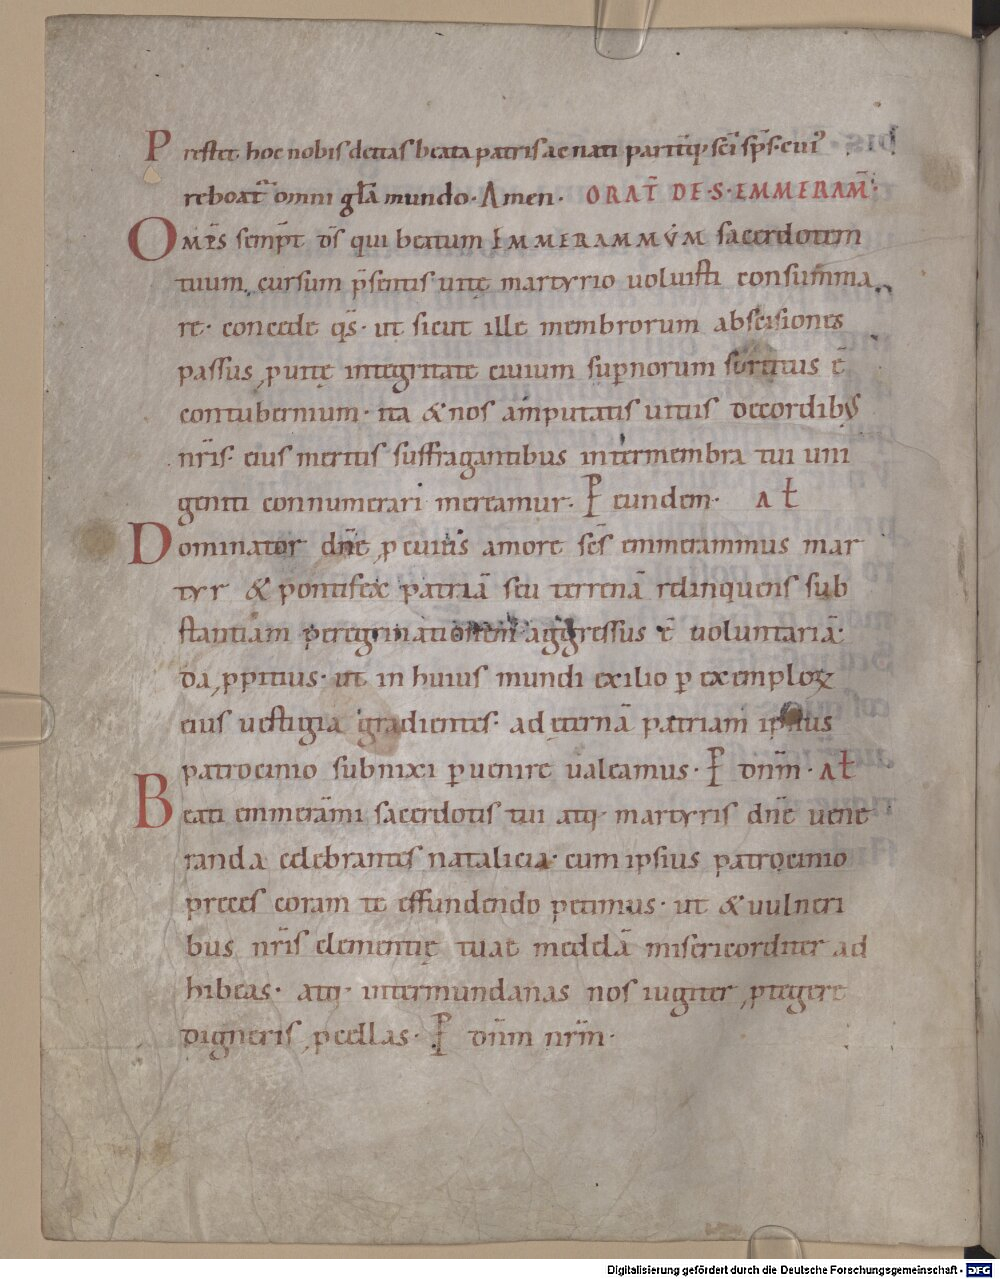 Prestet hoc nobis deitas beata patris ac nati paritq; sc̄i sp̄s· cuiꝰ
reboat̄ omni gl̄a mundo· Amen· ORAT̄ DE·S·EMMERAM̄·
OMP̄S semp̄t d̄s qui beatum EMMERAMMVM sacerdotem
tuum, cursum p̄sentis uitę martyrio uoluisti consumma
re· concede q̄s· ut sicut ille membrorum abscisiones
passus, ꝓ uitę integritate ciuium sup̲norum sortitus ē
contubernium· ita & nos amputatis uitiis de cordib;
nr̄is· eius meritis suffragantibus inter membra tui uni
geniti connumerari mereamur· P̲ eundem· A ł
Dominator dn̄e, ꝓ cuius amore sc̄s emmerammus mar
tyr & pontifex patriā seu terrenā relinquens sub
stantiam peregrinationem aggressus ē uoluntariā·
da, ꝓpitius· ut in huius mundi exilio p̲ exemploꝝ
eius uestigia gradientes· ad ęternā patriam ipsius
patrocinio subnixi p̲uenire ualeamus· P̲ dn̄m· A ł
Beati emmerāmi sacerdotis tui atq; martyris dn̄e uene
randa celebrantes natalicia· cum ipsius patrocinio
preces coram te effundendo petimus· ut & uulneri
bus nr̄is clementię tuae medelā misericorditer ad
hibeas· atq; inter mundanas nos iugiter, ꝓtegere
digneris, ꝓcellas· P̲ dn̄m nr̄m·
Digitalisierung gefördert durch die Deutsche Forschungsgemeinschaft - DFG